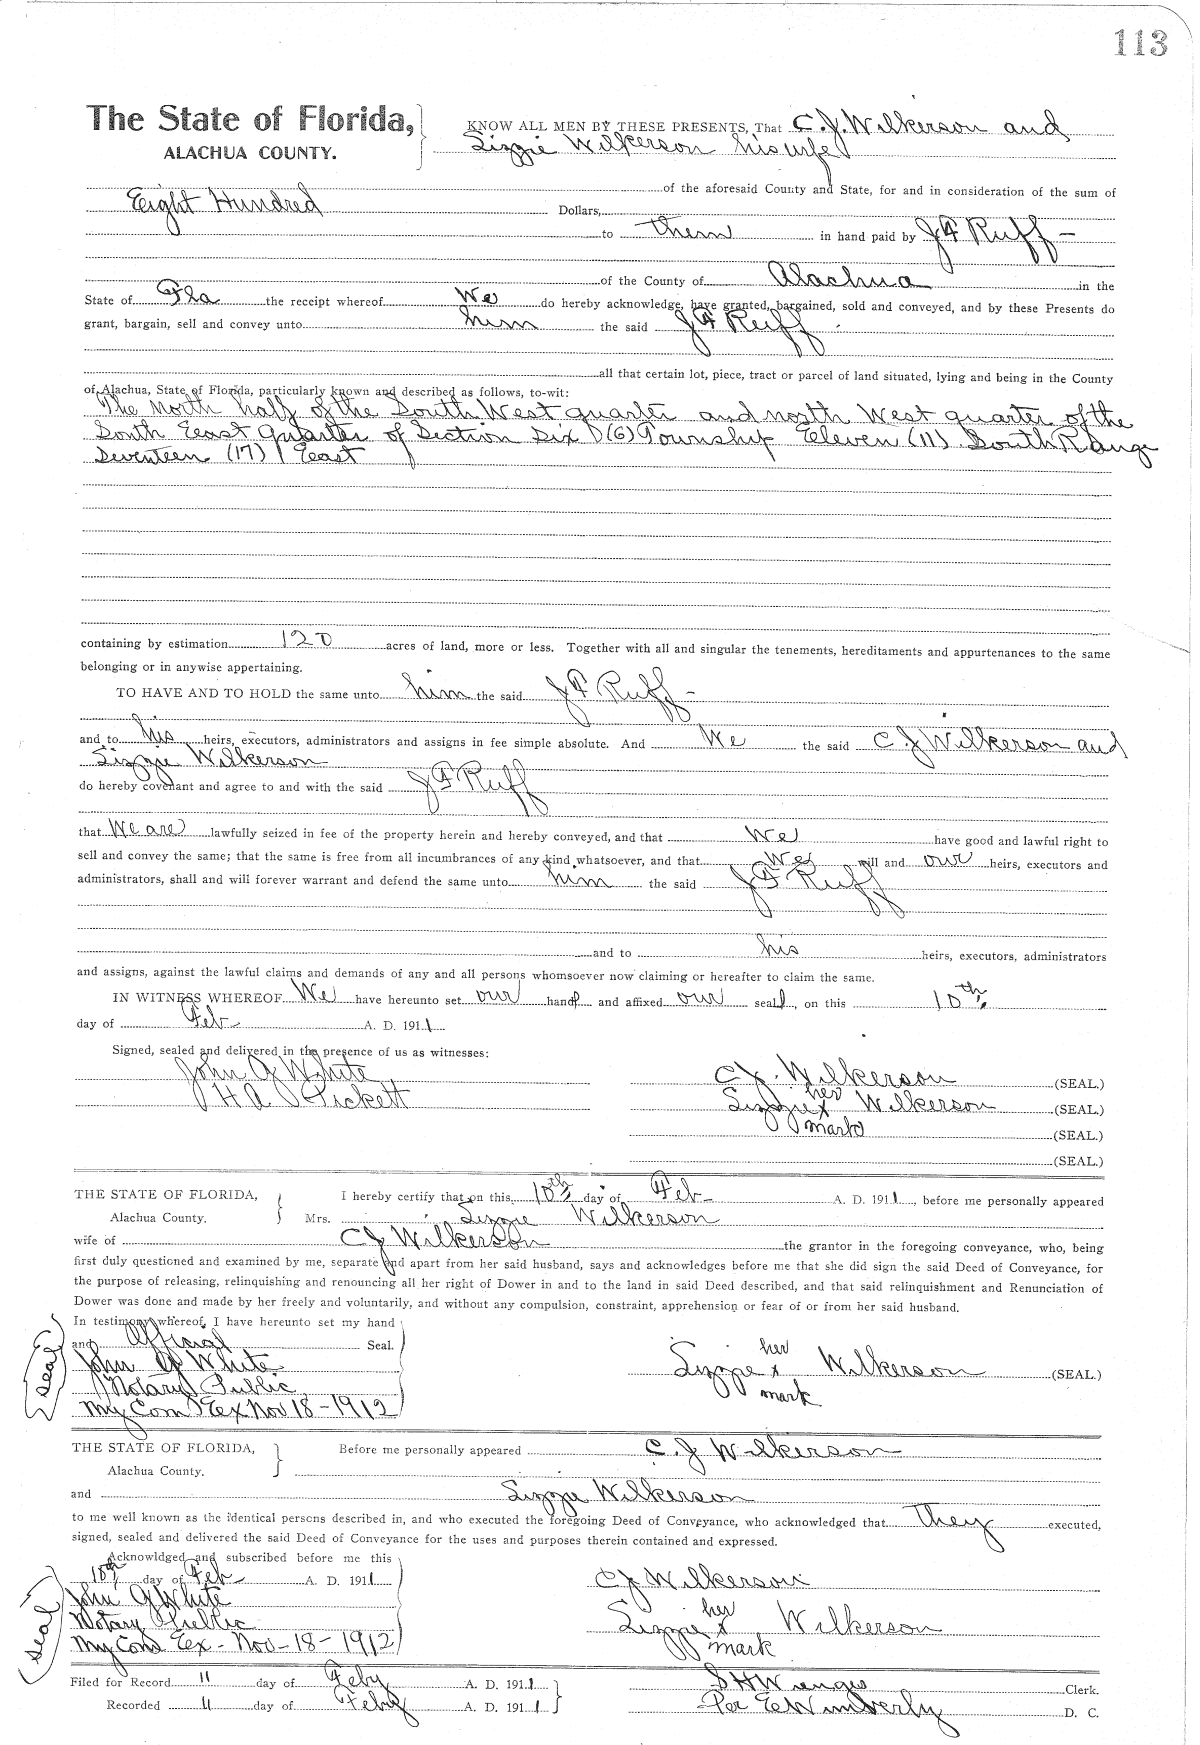 113
The State of Florida, KNOW ALL MEN BY THESE PRESENTS, That C. J. Wilkerson and
ALACHUA COUNTY. Lizzie Wilkerson his wife
of the aforesaid County and State, for and in consideration of the sum of
Eight Hundred Dollars,
to them in hand paid by J F Ruff
of the County of Alachua in the
State of Fla the receipt whereof We do hereby acknowledge, have granted, bargained, sold and conveyed, and by these Presents do
grant, bargain, sell and convey unto him the said J F Ruff
all that certain lot, piece, tract or parcel of land situated, lying and being in the County
of Alachua, State of Florida, particularly known and described as follows, to-wit:
The north half of the South West quarter and north West quarter of the
South East Quarter of Section Six (6) Township Eleven (11) South Range
Seventeen (17) East
containing by estimation 120 acres of land, more or less. Together with all and singular the tenements, hereditaments and appurtenances to the same
belonging or in anywise appertaining.
TO HAVE AND TO HOLD the same unto him the said J F Ruff
and to his heirs, executors, administrators and assigns in fee simple absolute. And We the said C J Wilkerson and
Lizzie Wilkerson
do hereby covenant and agree to and with the said J F Ruff
that We are lawfully seized in fee of the property herein and hereby conveyed, and that We have good and lawful right to
sell and convey the same; that the same is free from all incumbrances of any kind whatsoever, and that We will and our heirs, executors and
administrators, shall and will forever warrant and defend the same unto him the said J F Ruff
and to his heirs, executors, administrators
and assigns, against the lawful claims and demands of any and all persons whomsoever now claiming or hereafter to claim the same.
IN WITNESS WHEREOF We have hereunto set our hand and affixed our seal, on this 10th
day of Feb A. D. 1911
Signed, sealed and delivered in the presence of us as witnesses:
John A White C J. Wilkerson (SEAL.)
H A Pickett Lizzie her x mark Wilkerson (SEAL.)
(SEAL.)
(SEAL.)
THE STATE OF FLORIDA, I hereby certify that on this 10th day of Feb A. D. 1911, before me personally appeared
Alachua County. Mrs. Lizzie Wilkerson
wife of C J Wilkerson the grantor in the foregoing conveyance, who, being
first duly questioned and examined by me, separate and apart from her said husband, says and acknowledges before me that she did sign the said Deed of Conveyance, for
the purpose of releasing, relinquishing and renouncing all her right of Dower in and to the land in said Deed described, and that said relinquishment and Renunciation of
Dower was done and made by her freely and voluntarily, and without any compulsion, constraint, apprehension or fear of or from her said husband.
In testimony whereof, I have hereunto set my hand
and Official Seal.
seal
John A White Lizzie her x mark Wilkerson (SEAL.)
Notary Public
My Com Ex Nov 18 - 1912
THE STATE OF FLORIDA, Before me personally appeared C. J Wilkerson
Alachua County.
and Lizzie Wilkerson
to me well known as the identical persons described in, and who executed the foregoing Deed of Conveyance, who acknowledged that They executed,
signed, sealed and delivered the said Deed of Conveyance for the uses and purposes therein contained and expressed.
Acknowldged and subscribed before me this
10th day of Feb A. D. 1911 C J Wilkerson
seal
John A White Lizzie her x mark Wilkerson
Notary Public
My Com Ex - Nov - 18 - 1912
Filed for Record 11 day of Feby A. D. 1911 S H Wienges Clerk.
Recorded 11 day of Feby A. D. 1911 Per E Wimberly D. C.